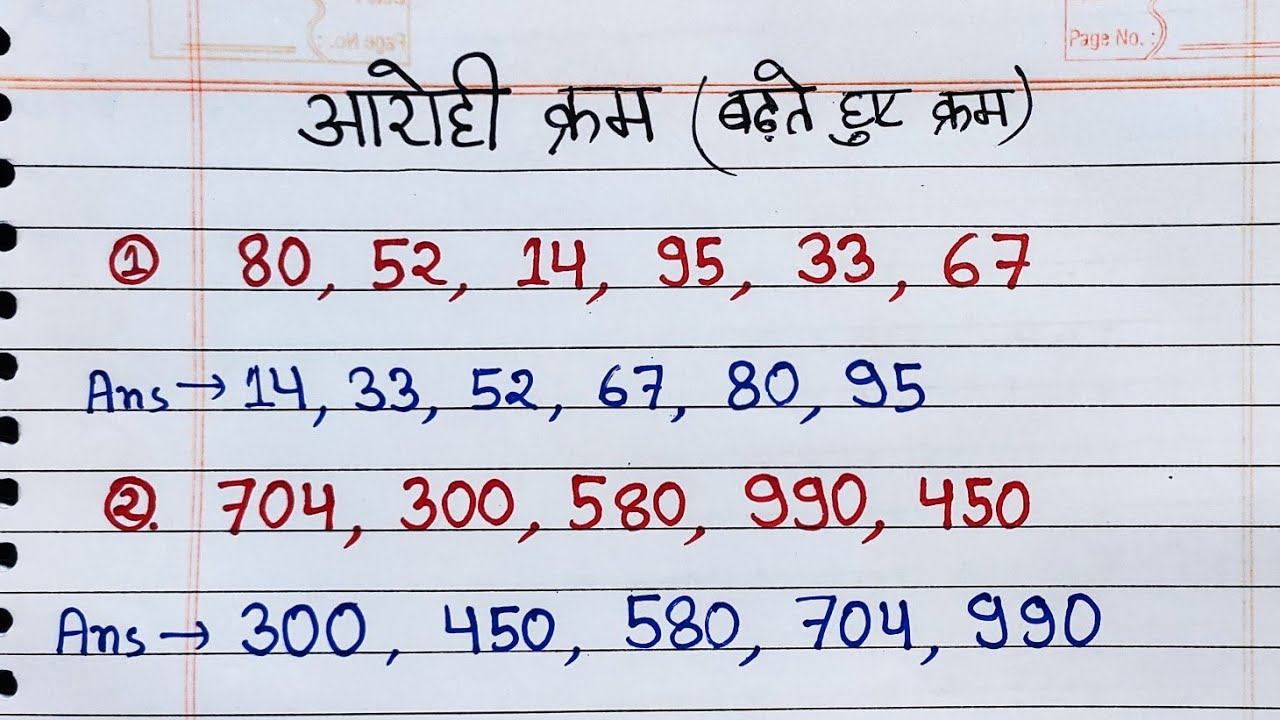 Page No. :
आरोही क्रम (बढ़ते हुए क्रम)
① 80, 52, 14, 95, 33, 67
Ans → 14, 33, 52, 67, 80, 95
②. 704, 300, 580, 990, 450
Ans → 300, 450, 580, 704, 990